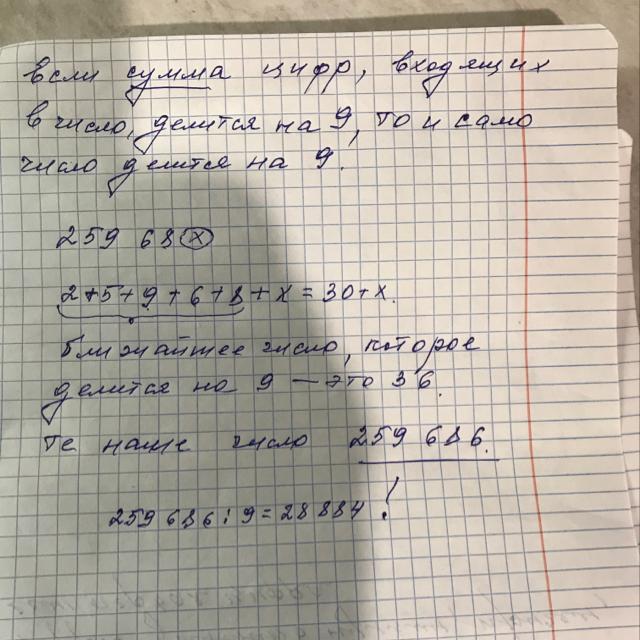 Если сумма цифр, входящих
в число, делится на 9, то и само
число делится на 9.
259 68x
2+5+9+6+8+x=30+x.
Ближайшее число, которое
делится на 9 — это 36.
Те наше число 259 686.
259 686:9=28884!